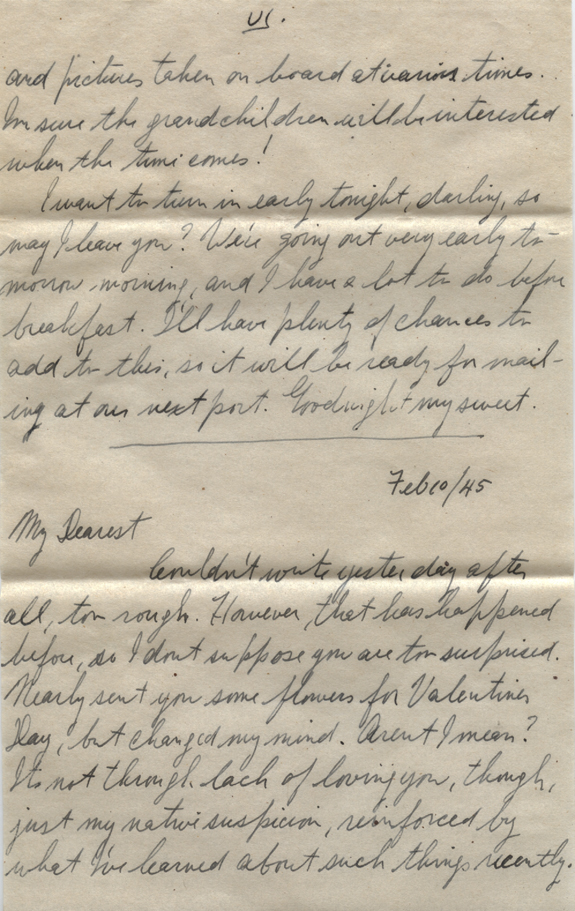 VI.
and pictures taken on board at various times.
I'm sure the grandchildren will be interested
when the time comes!
I want to turn in early tonight, darling, so
may I leave you? We're going out very early to-
morrow morning, and I have a lot to do before
breakfast. I'll have plenty of chances to
add to this, so it will be ready for mail-
ing at our next port. Goodnight my sweet.
Feb 10/45
My Dearest
Couldn't write yesterday after
all, too rough. However, that has happened
before, so I dont suppose you are too surprised.
Nearly sent you some flowers for Valentines
Day, but changed my mind. Arent I mean?
Its not through lack of loving you, though,
just my native suspicion, reinforced by
what I've learned about such things recently.